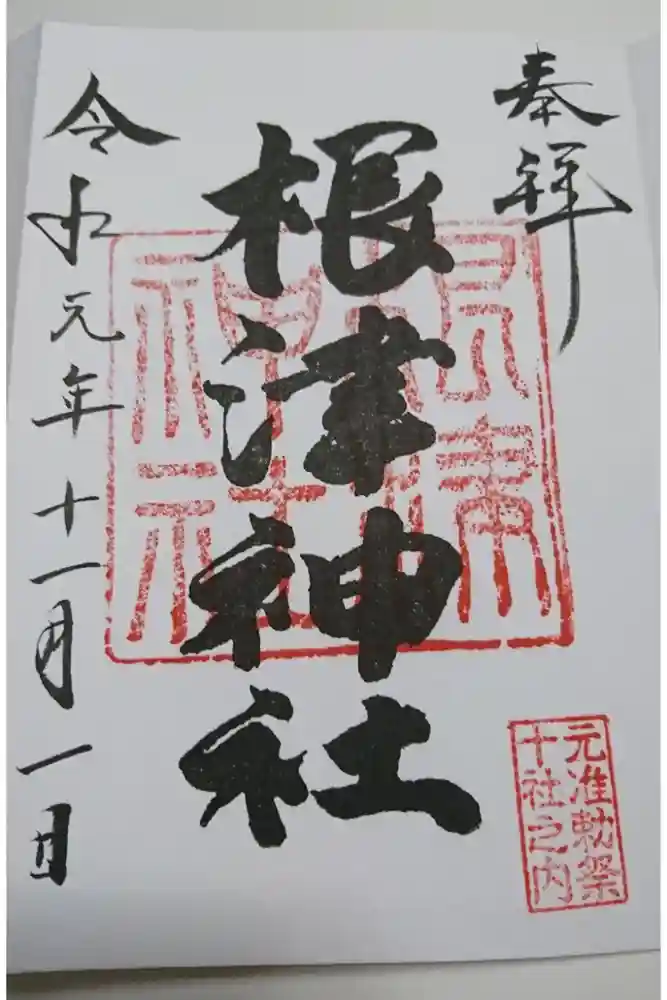 奉拝
根津神社
令和元年十一月一日
元准勅祭
十社之内